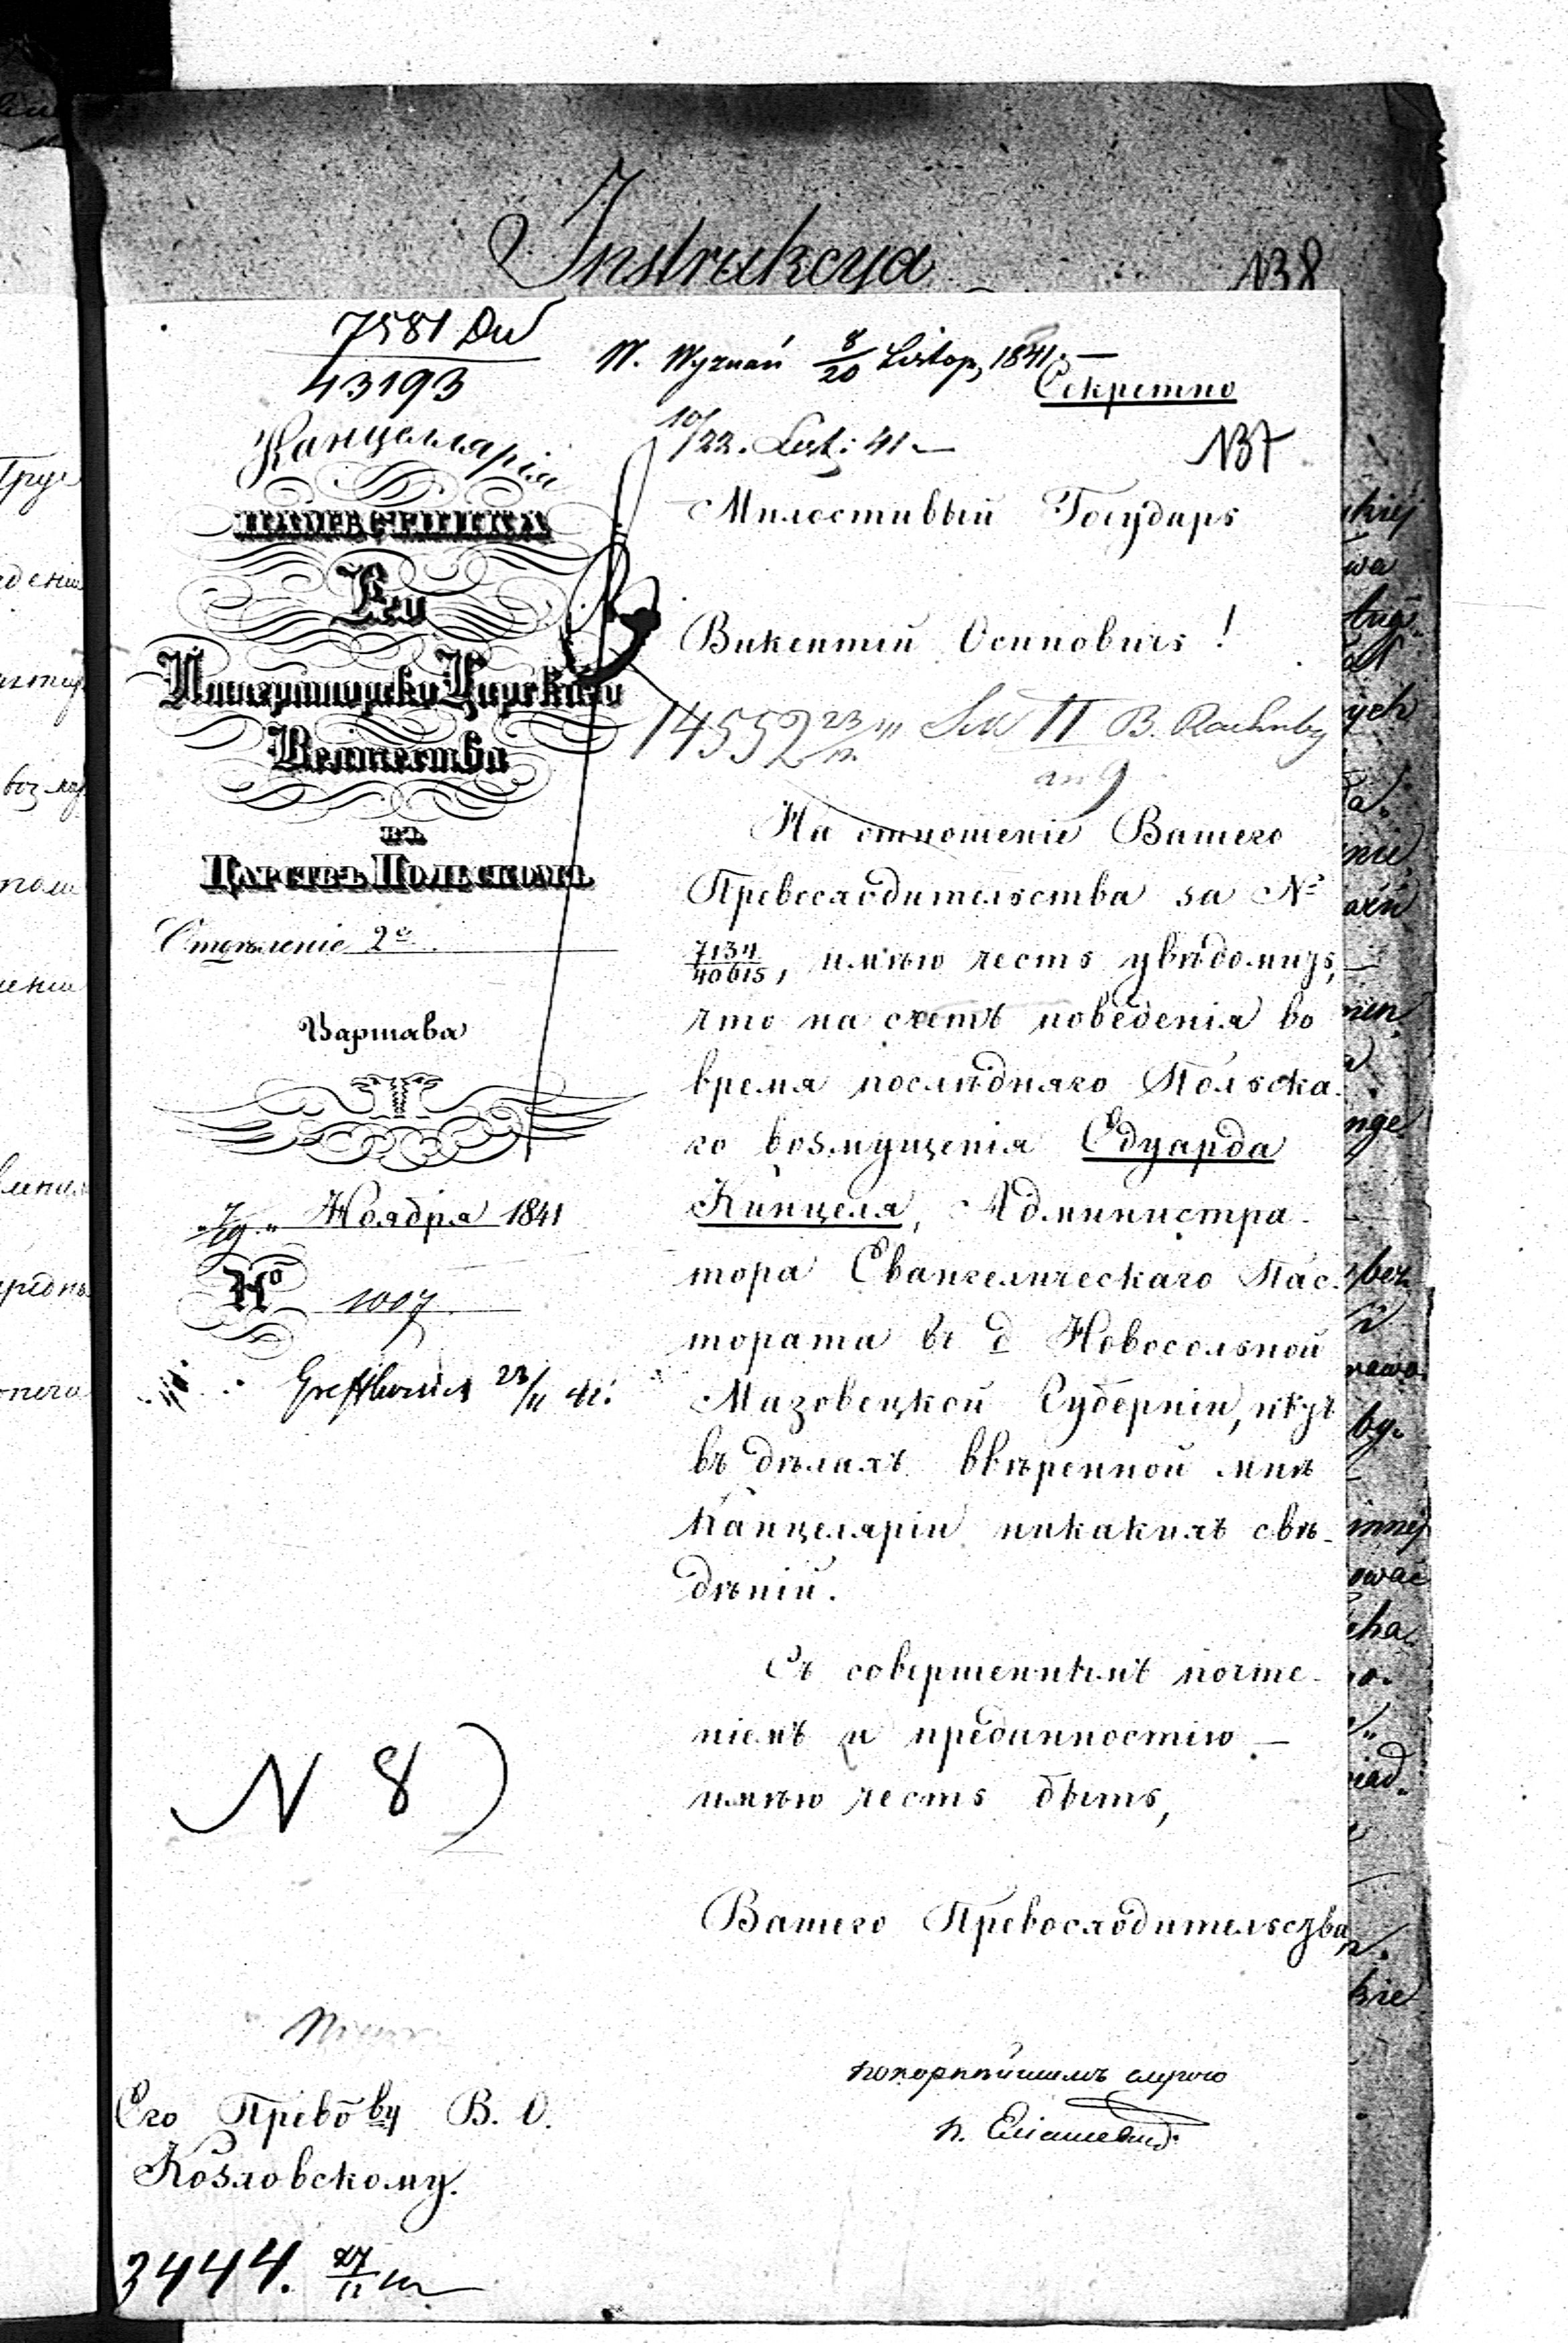 Instrukcya
138
7581 Dw
43193
W. Wyznań 8/20 Listop, 1841. —
Секретно
10/22. List: 41 —
137
Канцеллярія
НАМѢСТНИКА
Его
Императорско Царскаго
Величества
въ
Царствѣ Польскомъ
Отдѣленіе 2е
Варшава
Ноября 1841
№ 1007
23/11 41.
N 8)
Милостивый Государь
Викентій Осиповичъ!
14552 23/11 II B.
На отношеніе Вашего
Превосходительства за №
7134/40615, имѣю честь увѣдомить,
что на счетъ поведенія во
время послѣдняго Польска-
го возмущенія Едуарда
Кинцеля, Администра-
тора Евангелическаго Пас-
тората въ д Новосольной
Мазовецкой Губерніи, нѣтъ
въ дѣлахъ ввѣренной мнѣ
Канцеляріи никакихъ свѣ-
дѣній.
Съ совершеннымъ почте-
ніемъ и преданностію —
имѣю честь быть,
Вашего Превосходительства
покорнѣйшимъ слугою
Его Прево̄ву В. О.
Козловскому.
3444. 27/11